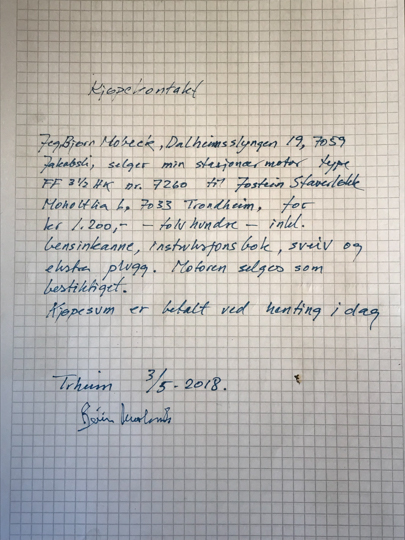 Kjøpekontakt
Jeg, Bjørn Mobeck, Dalheimsslyngen 19, 7059
Jakobsli, selger min stasjonær motor type
FF 3½ HK nr. 7260 til Jostein Staverløkk
Moholtlia 6, 7033 Trondheim, for
kr 1.200,- - tolv hundre - inkl.
bensinkanne, instruksjons bok, sveiv og
ekstra plugg. Motoren selges som
besiktiget.
Kjøpesum er betalt ved henting i dag
Trheim 3/5-2018.
Bjørn